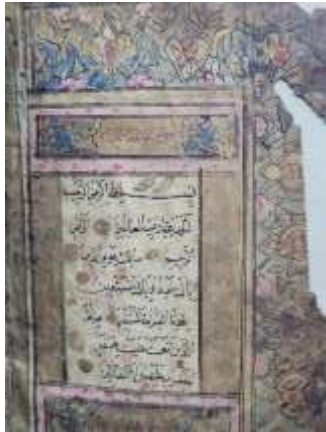 بسم الله الرحمن الرحيم
الحمد لله رب العالمين الرحمن
الرحيم مالك يوم الدين
اياك نعبد واياك نستعين
اهدنا الصراط المستقيم صراط
الذين انعمت عليهم غير
المغضوب عليهم ولا الضالين